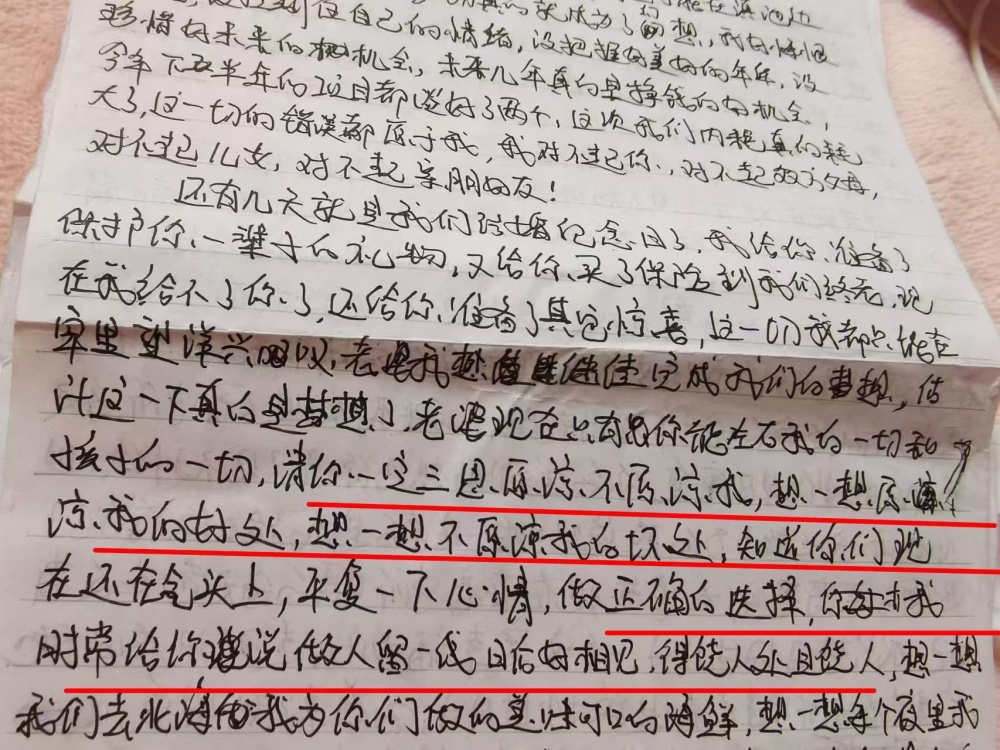 在滇池边
到自己的情绪，没把握好美好的年华，没
珍惜好未来的机会，未来几年真的是挣钱的好机会，
今年下半年的项目都谈好了两个，这次我们内耗真的耗
大了，这一切的错误都属于我，我对不起你，对不起双方父母，
对不起儿女，对不起亲朋好友！
还有几天就是我们结婚纪念日了，我给你准备了
保护你一辈子的礼物，又给你买了保险到我们终老，现
在我给不了你了，还给你准备了其它惊喜，这一切我都只能在
这里望洋兴叹，老婆我想继续完成我们的梦想，估
计这一下真的是梦想了，老婆现在只有你能左右我的一切和
孩子的一切，请你一定三思原谅不原谅我，想一想原
谅我的好处，想一想不原谅我的坏处，知道你们现
在还在气头上，平复一下心情，做正确的选择，你我
时常给你说做人留一线日后好相见，得饶人处且饶人，想一想
我们去北海我为你们做的美味可口的海鲜，想一想每个夜里我